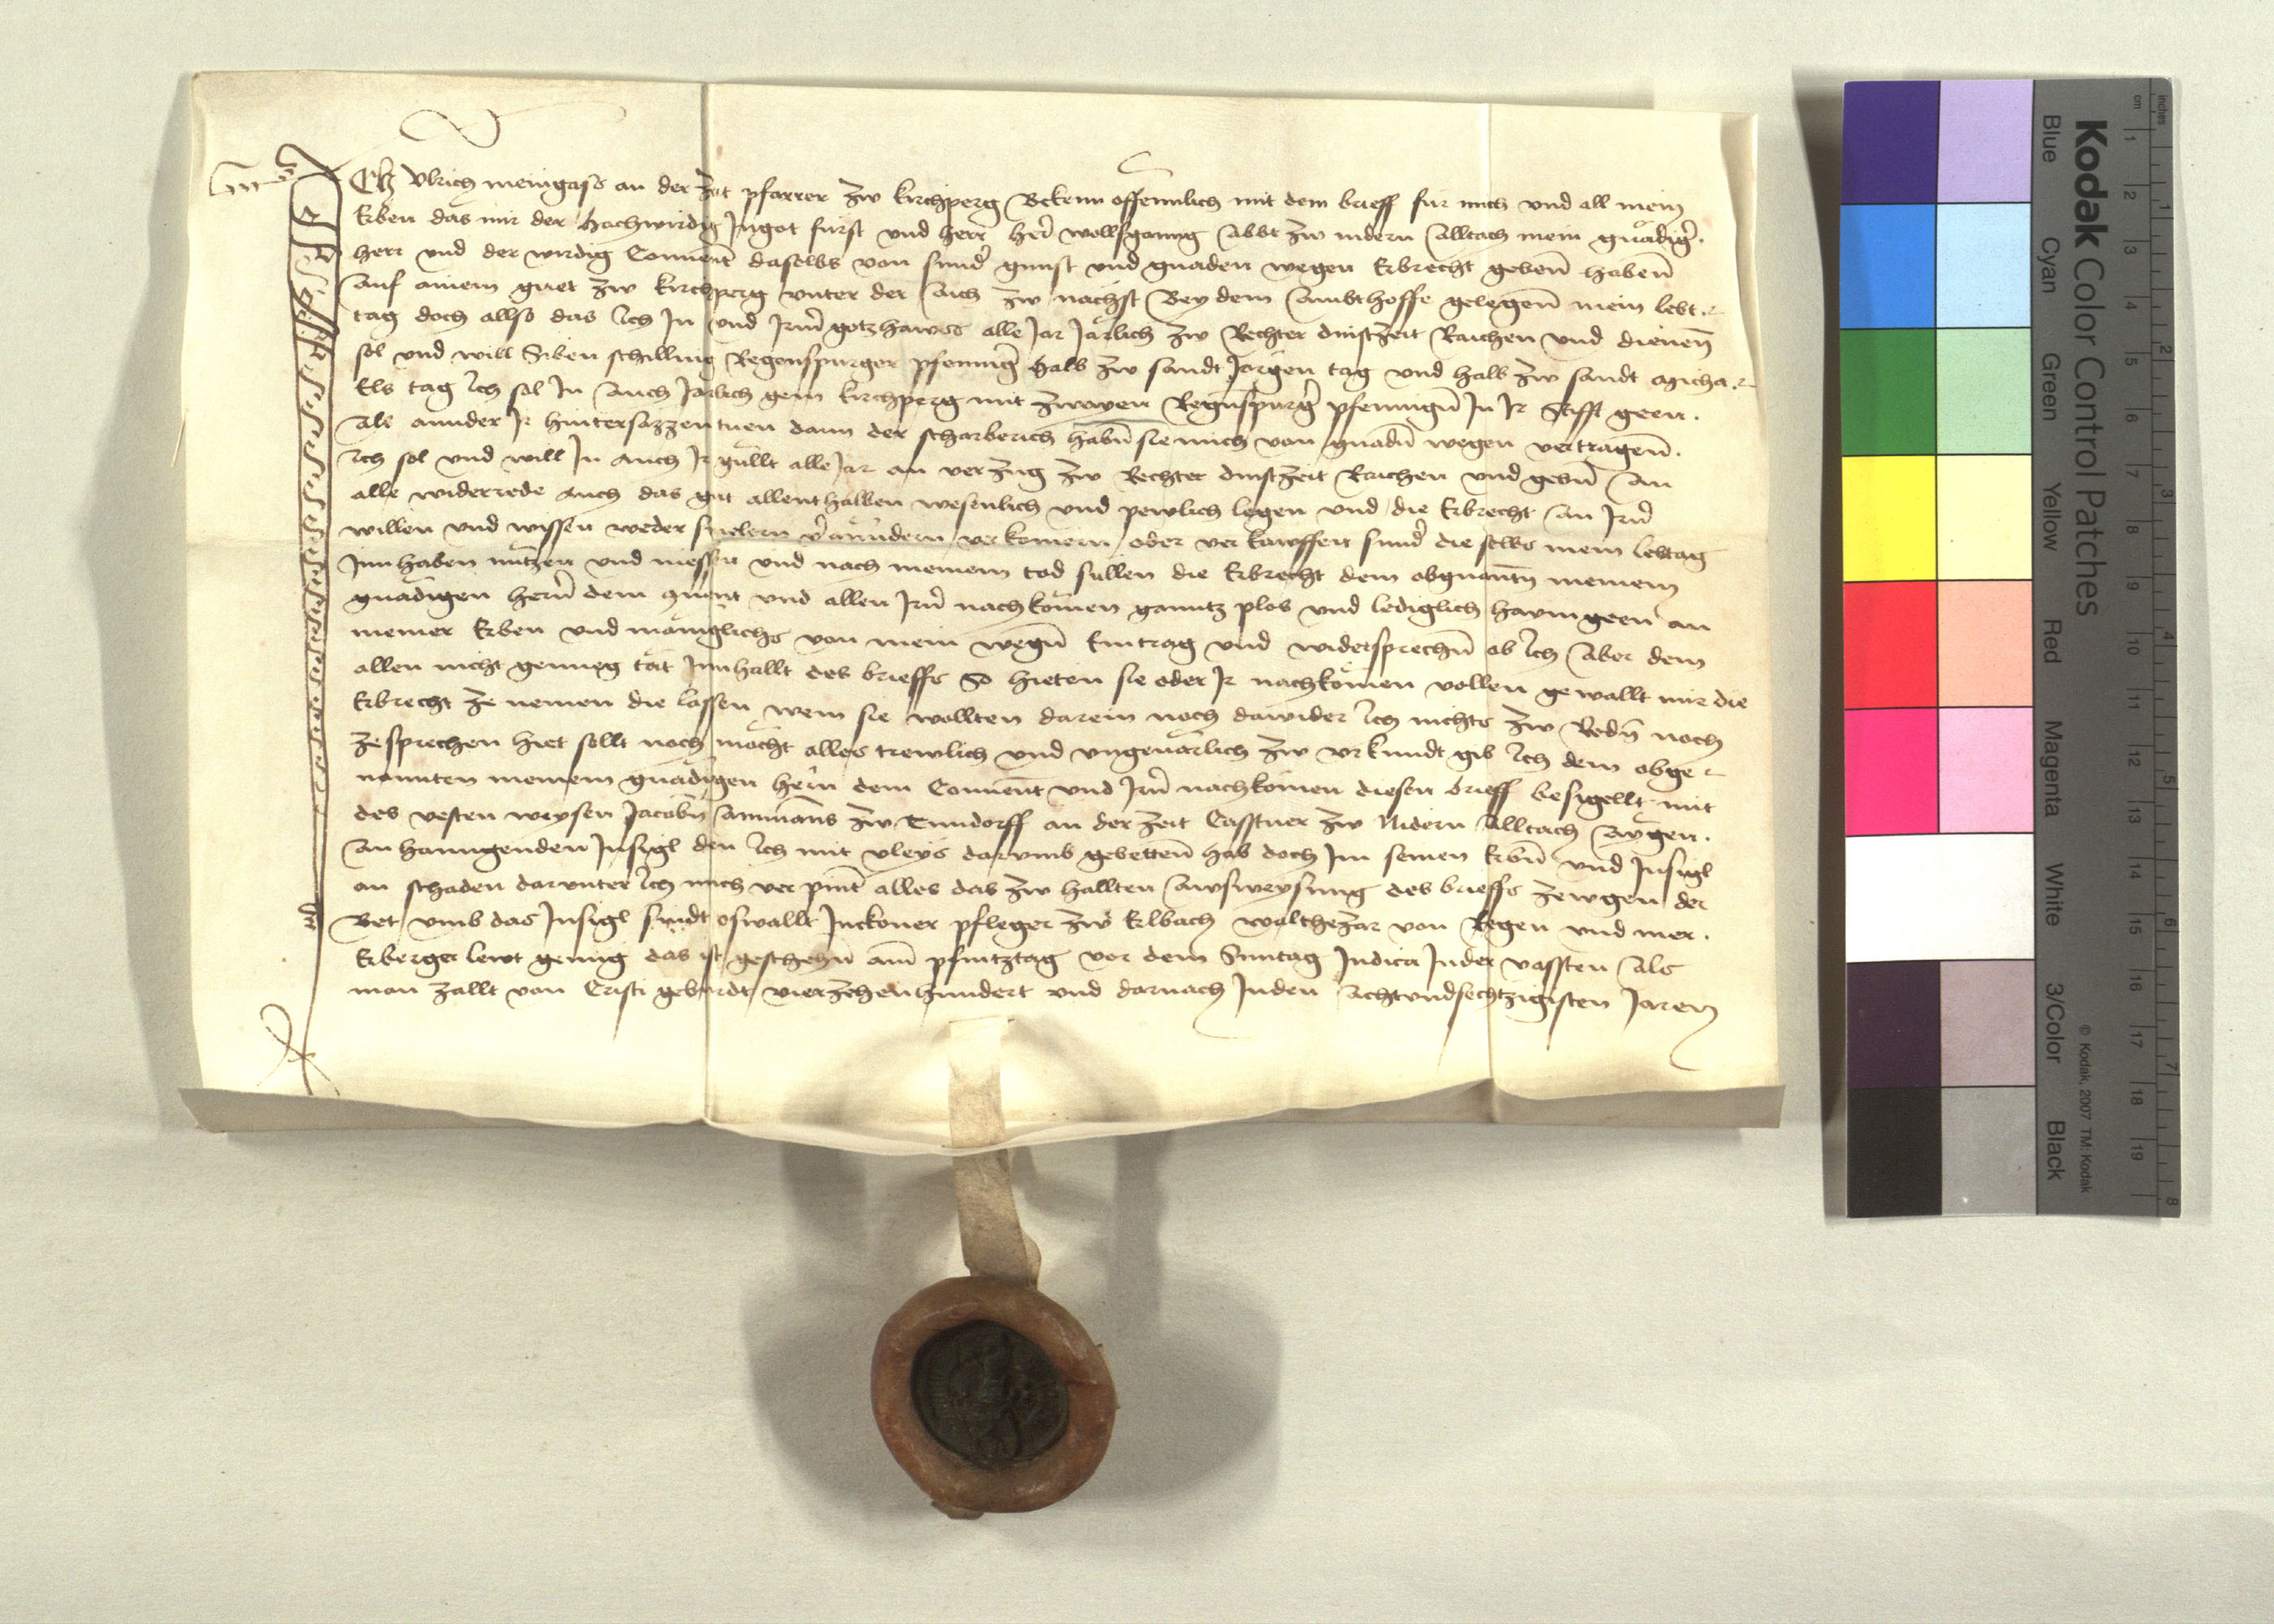 Ich Vlrich meingass an der Zeit pfarrer zw kirchperg Bekenn offennlich mit dem brieff fur mich vnd all mein
Erben das mir der hochwirdig Jngot fürst vnd herr her̄ wolffganng Abbt zw nidern Alltach mein gnädiḡ.
herr vnd der wirdig Conuent̄ daselbs von sunder̄ gunst vnd gnaden wegen Erbrecht gebenn̄ habenn̄
Auf ainem guet zw kirchperg vnter der Aich zw nächst Bey dem Ambthoffe gelegenn̄ mein lebt-
tag doch allso das Ich Jn vnd Jrm̄ gotzhawss alle Jar Järlich zw Rechter dinstzeit Raichen vnd dienenn̄
sol vnd will Siben schilling Regenspurger pfenninḡ halb zw sandt Jörgen tag vnd halb zw sandt Micha-
els tag Ich sol Jn Auch Järlich gein kirchperg mit zwayen Regn̄spurḡ pfenningn̄ Jn Jr Stifft geen.
Als annder Jr hintersäzzen tuen dann der scharberich habn̄ sie mich von gnadn̄ wegen vertragenn̄.
Ich sol vnd will Jn auch Jr güllt alle Jar an verzug zw Rechter dinstzeit Raichen vnd gebn̄ An
alle widerrede auch das gut allenthallben wesenlich vnd pewlich legen vnd die Erbrecht An Jrn̄
willen vnd wissen weder smelern v̄anndern verkomern oder verkawffen sunder̄ die selbs mein lebtag
Jnnhaben nutzen vnd niessen vnd nach meinem tod sullen die Erbrecht dem obgnantn̄ meinem
gnädigen hern̄ dem 9uent vnd allen Jrn̄ nachkomen ganntz plos vnd lediglich haymgeen an
meiner Erben vnd mäniglichs von mein wegn̄ Eintrag vnd widersprechn̄ ob Ich Aber dem
allen nicht genueg tät Jnnhallt des brieffs So hieten sie oder Jr nachkömen vollen gewallt mir die
Erbrecht ze nemen die lassen wem sie wollten darein noch dawider Ich nichts zw Redn̄ noch
zesprechen hiet sollt noch möcht alles trewlich vnd vngeuärlich zw vrkundt gib Ich dem obge-
nannten meinem gnädigen hern̄ dem Conuent̄ vnd Jrn̄ nachkömen diesen brieff besigellt mit
des vesten weysen Jacobn̄ Ammans zw Enndorff an der zeit Casstner zw Nidern Alltach Aygen.
Anhanngenden Jnsigl den Ich mit vleys darvmb gebettenn̄ hab doch Jm seinen Erbn̄ vnd Jnsigl
on schaden darvnter Ich mich verpint̄ alles das zw hallten Awsweysung des brieffs zewgen der
Bet vmb das Jnsigl sindt oswallt Jnckoner pfleger zw Elbach walthezar von Regen vnd mer.
Erberger lewt genug das ist geschehn̄ am̄ pfintztag vor dem Sunntag Judica Jn der vassten Als
man zallt von Cristi gebürdt vierzehenhundert vnd darnach Jn den Achtvndsechtzigisten Jaren
Kodak Color Control Patches
Blue Cyan Green Yellow Red Magenta White 3/Color Black
© Kodak, 2007 TM: Kodak
cm 1 2 3 4 5 6 7 8 9 10 11 12 13 14 15 16 17 18 19
inches 1 2 3 4 5 6 7 8